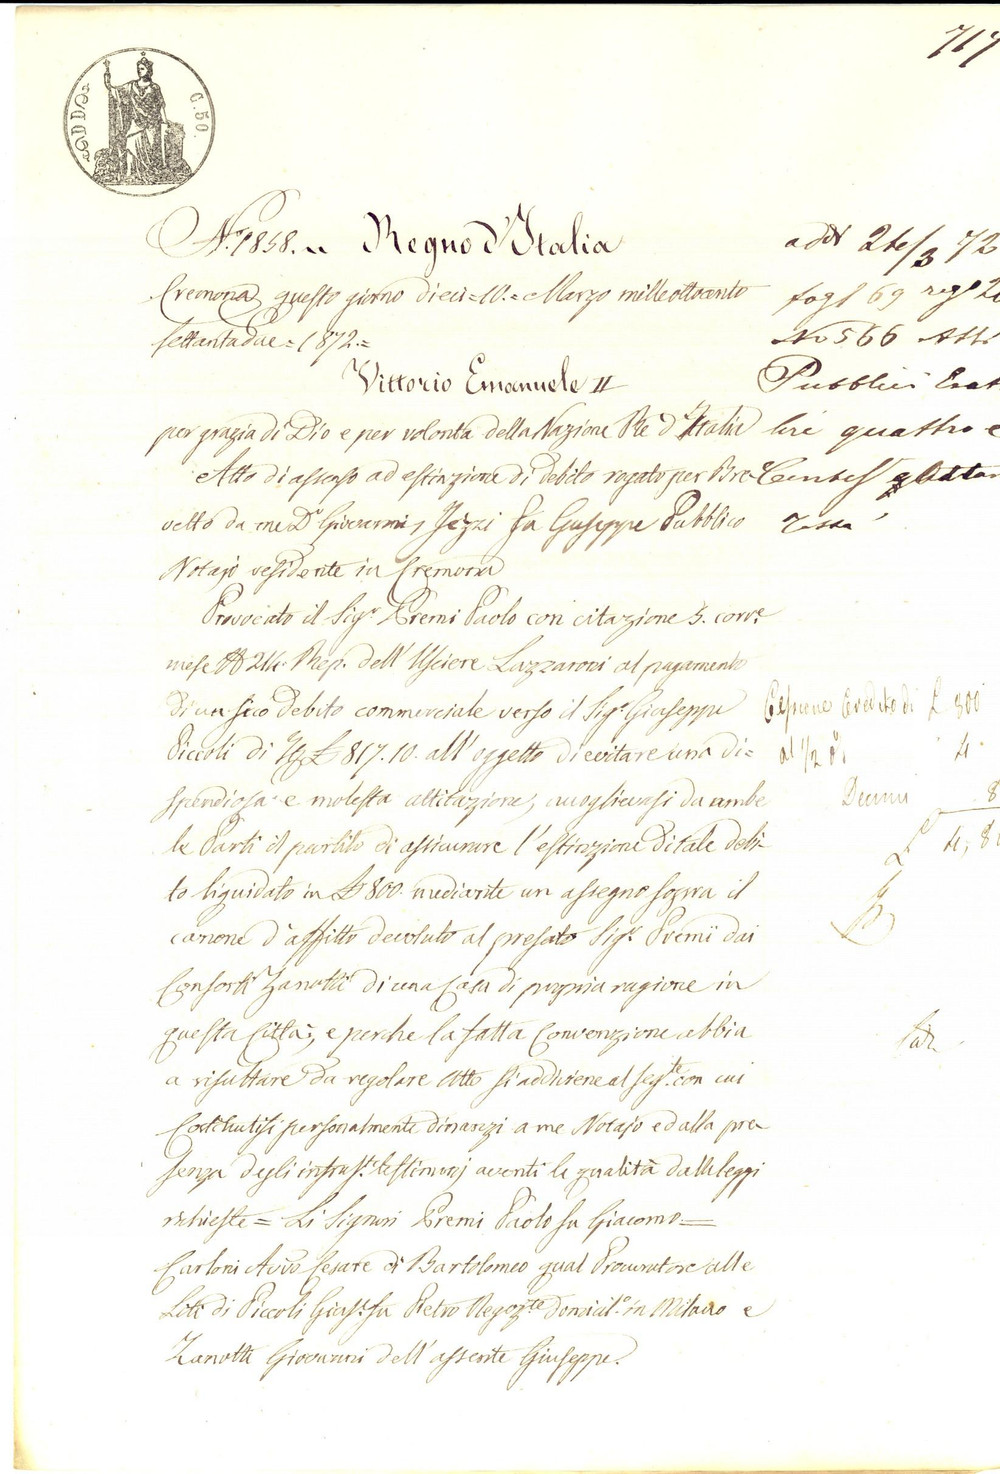 717
C. 50.
N.° 1858. = Regno d'Italia
Cremona, questo giorno dieci = 10. = Marzo mille ottocento
settantadue = 1872. =
Vittorio Emanuele II
per grazia di Dio e per volontà della Nazione Re d'Italia
Atto di assenso ad estinzione di debito rogato per Bre-
vetto da me Dr. Giovanni Fezzi fu Giuseppe Pubblico
Notajo residente in Cremona
Provocato il Sigr. Premi Paolo con citazione 5. corre
mese N 214. Rep. dell'Usciere Lazzaroni al pagamento
di un suo debito commerciale verso il Sigr. Giuseppe
Piccoli di £ 817.10. all'oggetto di evitare una di=
spendiosa e molesta attitazione, avvoglievasi da ambe
le Parti il partito di assicurare l'estinzione di tale debi-
to liquidato in £ 800. mediante un assegno sopra il
canone d'affitto devoluto al prefato Sigr. Premi dai
Consorti Zanotti di una Casa di propria ragione in
questa Città, e perchè la fatta Convenzione abbia
a risultare da regolare Atto si addiviene al segte. con cui
Costitutisi personalmente dinanzi a me Notajo ed alla pre-
senza degli infrast. testimonj aventi le qualità dalle leggi
richieste = Li Signori Premi Paolo fu Giacomo =
Carloni Avvo Cesare di Bartolomeo qual Procuratore alle
Liti di Piccoli Gius. fu Pietro Negozte. domicil.° in Milano e
Zanotti Giovanni dell'assente Giuseppe.
addì 26/3 72
fogl 69 reg°
No 566 Atti
Pubblici
lire quattro e
Centes
Tassa
Cessione Credito di £ 800
al 1/2 % 4.
Decimi 8
£ 4,8